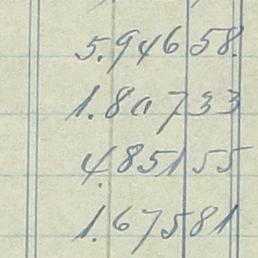 5.946 58.
1.80733
4.85155
1.67581